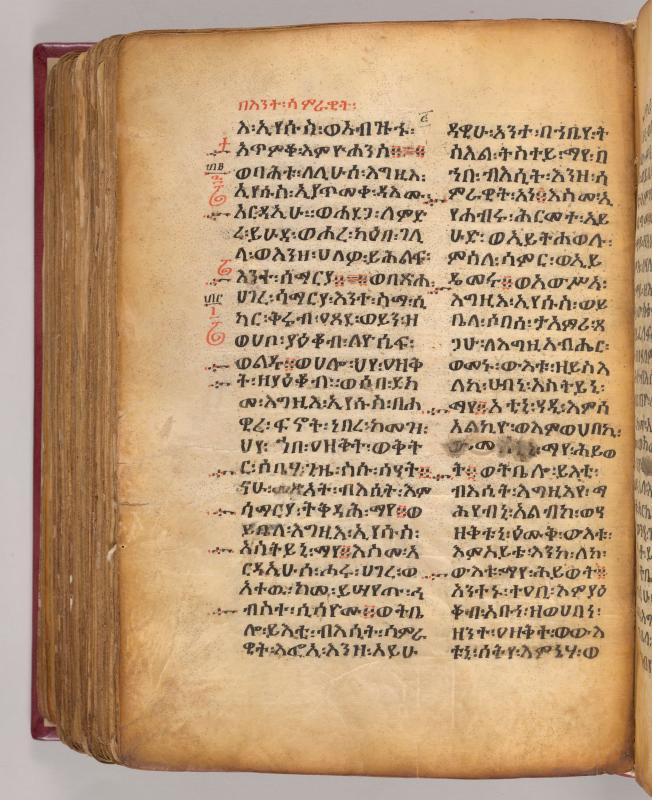 በእንተ፡ሳምራዊት፡
እ፡ኢየሱስ፡ወአብዝኁ፡
አጥምቆ፡እምዮሐንስ።
ወባሕቱ፡ለሊሁሰ፡እግዚእ፡
ኢየሱስ፡ኢያጥመቀ፡ዳእሙ፡
አርዳኢሁ።ወኀደጋ፡ለምድ
ረ፡ይሁዳ፡ወሖረ፡ካዕበ፡ገሊ
ላ፡ወእንዘ፡ሀለዎ፡ይሕልፍ፡
እንተ፡ሰማርያ።ወበጽሐ፡
ሀገረ፡ሳማርያ፡እንተ፡ስማ፡ሲ
ካር፡ቅሩብ፡ዐጸደ፡ወይን፡ዘ
ወሀቦ፡ያዕቆብ፡ለዮሴፍ፡
ወልዱ።ወሀሎ፡ህየ፡ዐዘቅ
ት፡ዘያዕቆብ።ወሰበ፡ደክ
መ፡እግዚእ፡ኢየሱስ፡በሐ
ዊረ፡ፍኖት፡ነበረ፡ከመዝ፡
ህየ፡ኀበ፡ዐዘቅት፡ወቅት
ር፡ሶቤሃ፡ጊዜ፡ስሱ፡ሰዓት።
ናሁ፡መጽአት፡ብእሲት፡እም
ሰማርያ፡ትቅዳሕ፡ማየ።ወ
ይቤላ፡እግዚእ፡ኢየሱስ፡
አስትይኒ፡ማየ።እስመ፡አ
ርዳኢሁሰ፡ሖሩ፡ሀገረ፡ወ
አተዉ፡ከመ፡ይሣየጡ፡ዲ
ብስተ፡ሲሳዮሙ።ወትቤ
ሎ፡ይእቲ፡ብእሲት፡ሳምራ
ዊት፡እፎኢ፡እንዘ፡አይሁ
ዳዊሁ፡አንተ፡በኀቤየ፡ት
ስእል፡ትስተይ፡ማየ፡በ
ኀበ፡ብእሲት፡እንዘ፡ሳ
ምራዊት፡አነ።እስመ፡ኢ
የሐብሩ፡ሕርመተ፡አይ
ሁድ፡ወኢይትሐወሉ፡
ምስለ፡ሳምር፡ወኢይ
ዴመሩ።ወአውሥአ፡
እግዚእ፡ኢየሱስ፡ወይ
ቤላ፡ሶበሰ፡ታአምሪ፡ጸ
ጋሁ፡ለእግዚአብሔር፡
ወመኑ፡ውእቱ፡ዘይስእ
ለኪ፡ሀብኒ፡እስተይ፡
ማየ።አንቲኒ፡እምሰ
አልኪዮ፡ወእምወሀበኪ፡
ማየ፡ሕይወ
ት።ወትቤሎ፡ይእቲ፡
ብእሲት፡እግዚእየ፡ማ
ሕየብ፡አልብከ፡ወዓ
ዘቅቱኒ፡ዕሙቅ፡ውእቱ፡
እምአይቴ፡እንከ፡ለከ፡
ውእቱ፡ማየ፡ሕይወት።
አንተኑ፡ተዐቢ፡እምያዕ
ቆብ፡አቡነ፡ዘወሀበነ፡
ዘንተ፡ዐዘቅተ፡ወውእ
ቱኒ፡ሰትየ፡እምኔሃ፡ወ